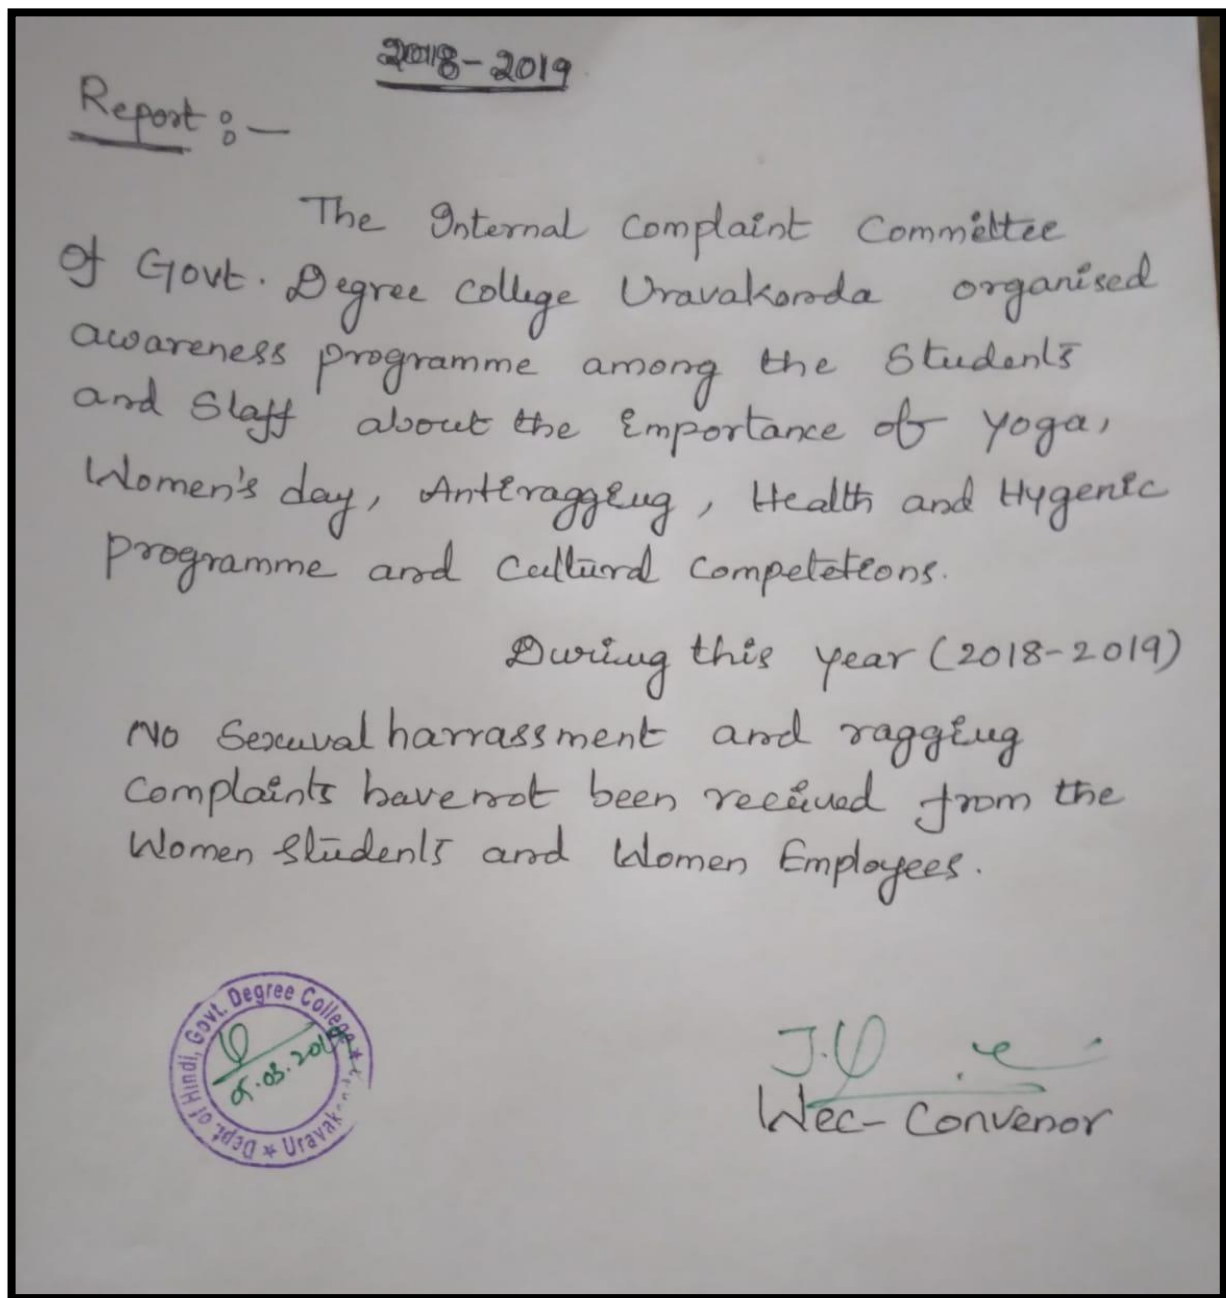 2018-2019
Report :-
The Internal Complaint Committee
of Govt. Degree college Uravakonda organised
awareness programme among the Students
and Staff about the importance of yoga,
Women's day, Antiragging, Health and Hygenic
programme and Cultural Competetions.
During this year (2018-2019)
No Sexuval harrassment and ragging
Complaints have not been received from the
Women Students and Women Employees.
Dept. of Hindi, Govt. Degree College * Uravakonda *
03.2019
J.
Wec- Convenor